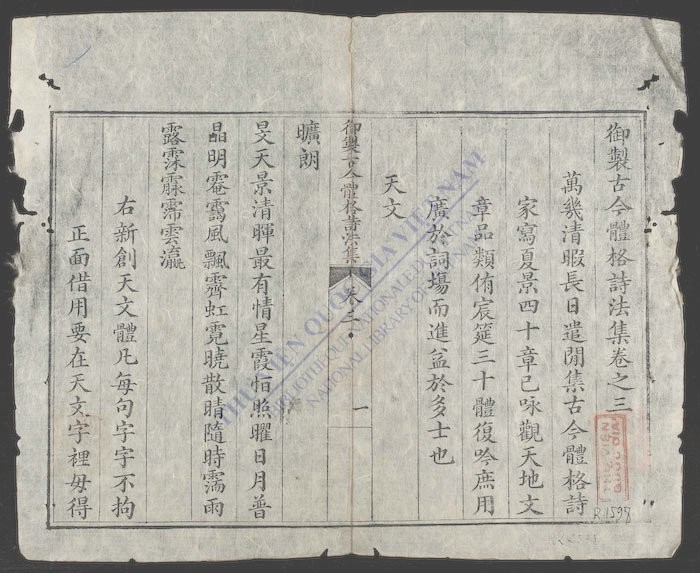 御製古今體格詩法集卷之三
萬幾清暇長日遣閒集古今體格詩
家寫夏景四十章已咏觀天地文
章品類侑宸筵三十體復吟庶用
廣於詞場而進益於多士也
天文
御製古今體格詩法集
卷三
一
曠朗
旻天景清暉最有情星霞恒照曜日月普
晶明霮靄風飄霽虹霓曉散晴隨時霈雨
露霂雲瀛
右新創天文體凡每句字字不拘
正面借用要在天文字裡毋得
THU VIEN QUOC GIA VIET NAM
BIBLIOTHEQUE NATIONALE DU VIETNAM
NATIONAL LIBRARY OF VIETNAM
R.1597